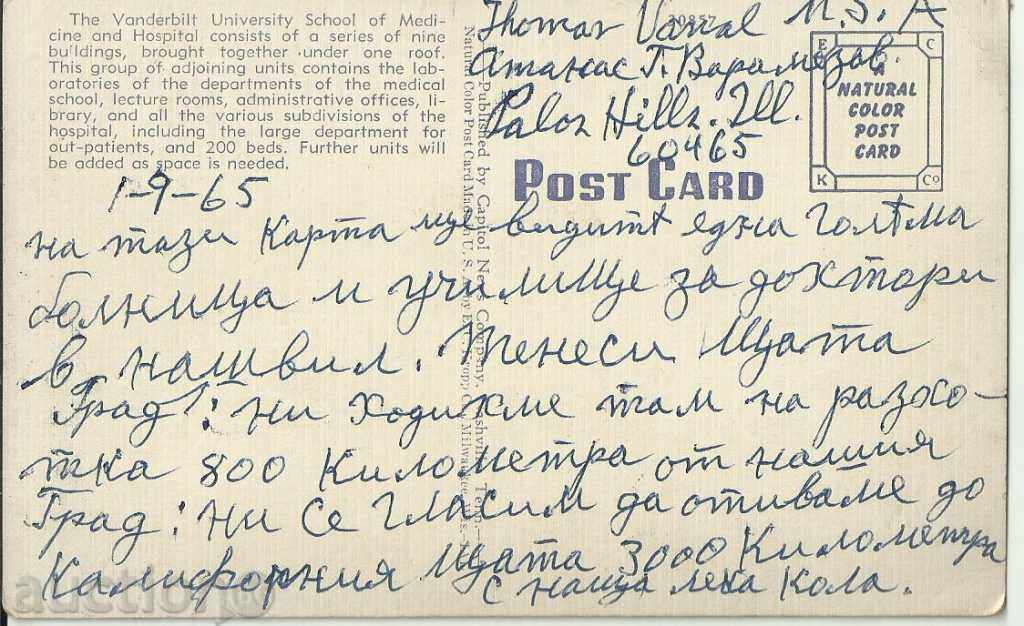 The Vanderbilt University School of Medi-
cine and Hospital consists of a series of nine
buildings, brought together under one roof.
This group of adjoining units contains the lab-
oratories of the departments of the medical
school, lecture rooms, administrative offices, li-
brary, and all the various subdivisions of the
hospital, including the large department for
out-patients, and 200 beds. Further units will
be added as space is needed.
Published by Capitol News Company, Nashville, Tenn.
Natural Color Post Card Made in U. S. A. by E. C. Kropp Co., Milwaukee, Wis.
20857
Thomas U.S.A
Атанас Г. Варамезов.
Palos Hills. Ill.
60465
POST CARD
E C
A
NATURAL
COLOR
POST
CARD
K Co
1-9-65
на тази Карта ще видитѣ една голѣма
болница и училище за дохтари
в Нашвил. Тенеси Щата
Град: ни ходихме там на разхо-
тка 800 Километра от нашия
Град: ни се гласим да отиваме до
Калифорния Щата 3000 Километра
с наща лека Кола.